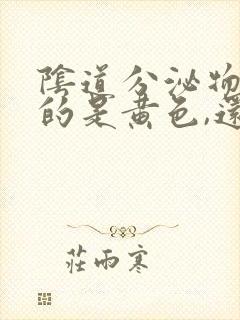 陰道分泌物
的是黄色,還
莊雨寒